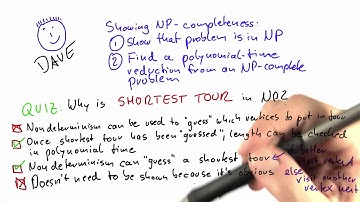 Showing NP-completeness:
① Show that problem is in NP
② Find a polynomial-time
reduction from an NP-complete
problem
DAVE
QUIZ: Why is SHORTEST TOUR in NP?
Nondeterminism can be used to "guess" which vertices to put in tour
Once shortest tour has been "guessed", length can be checked
in polynomial time
Nondeterminism can "guess" a shortest tour
Doesn't need to be shown because it's obvious
visit another
vertex next